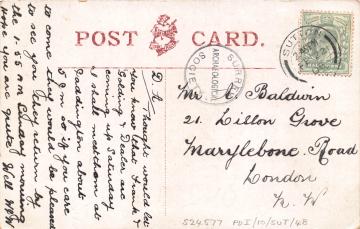 POST CARD.
SURREY ARCHAEOLOGICAL SOCIETY
SUTTON
D. A. Thought would let
you know that Frank &
Golding & Dealer are
coming up Saturday
I shall meet them at
Paddington about
5 P.M so if you care
to come they would be pleased
to see you They return by
the 1-35 AM Sunday morning
Hope you are quite Well WVW
Mr C. Baldwin
21. Lillon Grove
Marylebone Road
London
N. W
524577 PDI/10/SUT/48